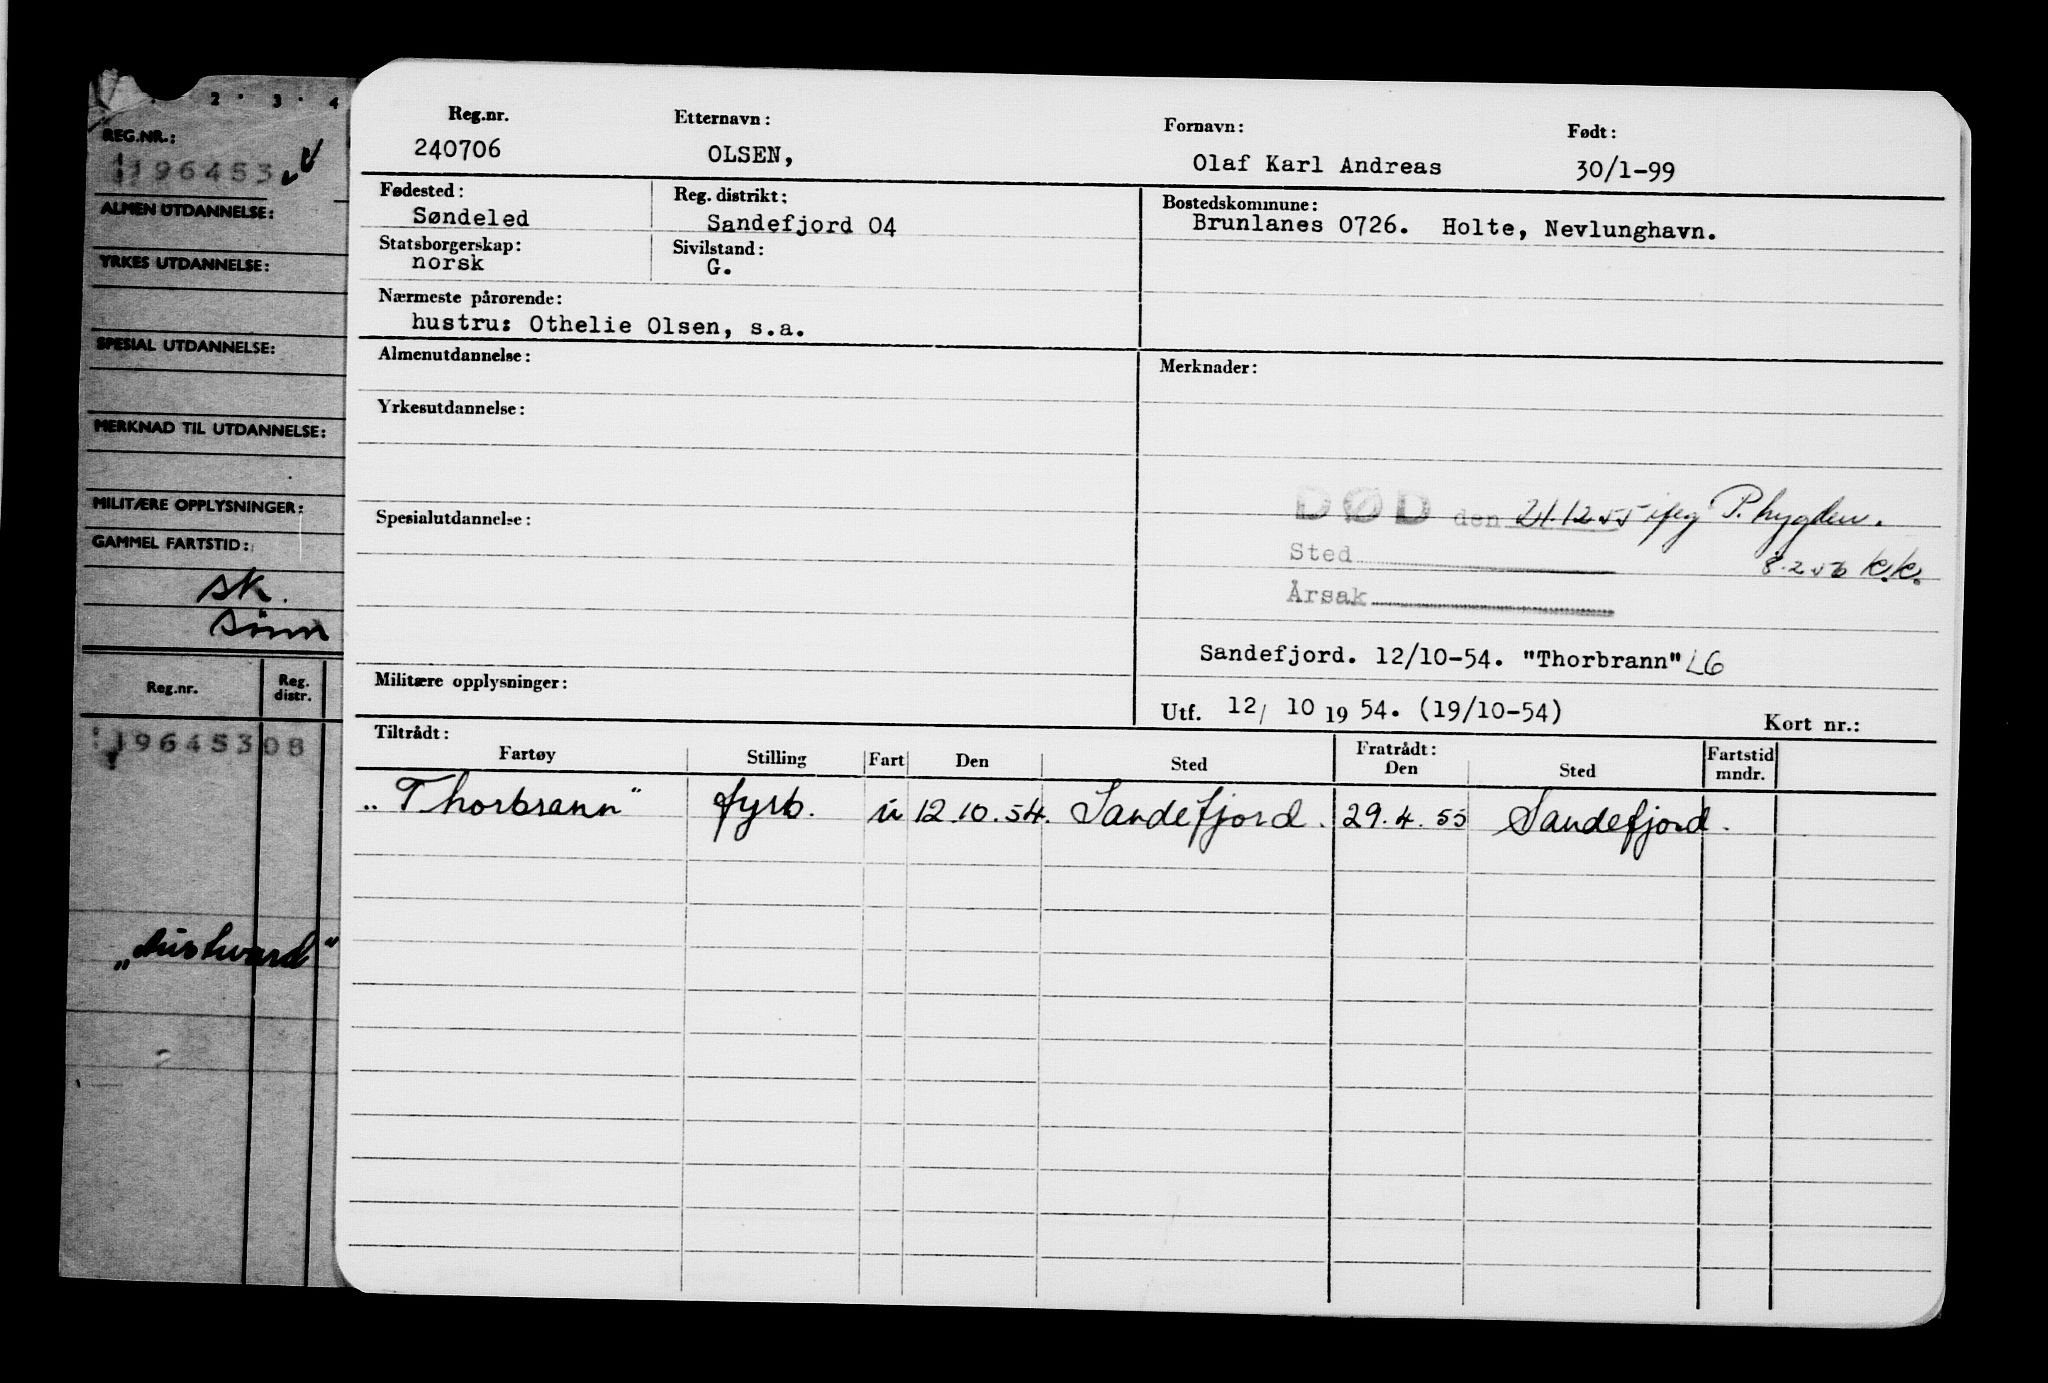 2 · 3 · 4
REG.NR.:
196453
ALMEN UTDANNELSE:
YRKES UTDANNELSE:
SPESIAL UTDANNELSE:
MERKNAD TIL UTDANNELSE:
MILITÆRE OPPLYSNINGER:
GAMMEL FARTSTID:
sk.
Reg.nr. Reg. distr.
196453 08
Reg.nr. Etternavn: Fornavn: Født:
240706 OLSEN, Olaf Karl Andreas 30/1-99
Fødested: Reg. distrikt: Bostedskommune:
Søndeled Sandefjord 04 Brunlanes 0726. Holte, Nevlunghavn.
Statsborgerskap: Sivilstand:
norsk G.
Nærmeste pårørende:
hustru: Othelie Olsen, s.a.
Almenutdannelse: Merknader:
Yrkesutdannelse:
Spesialutdannelse:
DØD den 21.12.55 ifg P. hygden.
Sted 8.2.56 K.K.
Årsak
Sandefjord. 12/10-54. "Thorbrann" LG
Militære opplysninger:
Utf. 12/ 10 19 54. (19/10-54) Kort nr.:
Tiltrådt: Fratrådt: Fartstid
Fartøy Stilling Fart Den Sted Den Sted mndr.
„Thorbrann" fyrb. u 12.10.54. Sandefjord. 29.4.55 Sandefjord.